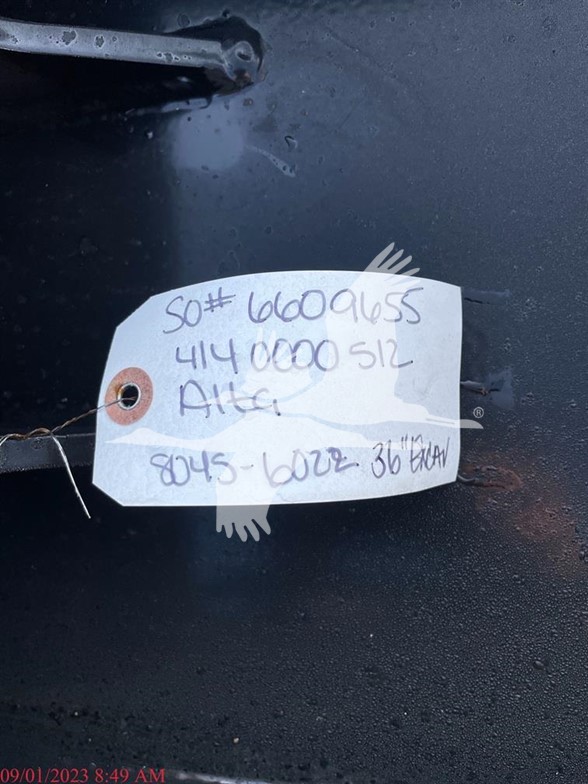 SO# 6609655
414 0000 512
Alta
8045-6022 36" EXCAV
®
09/01/2023 8:49 AM